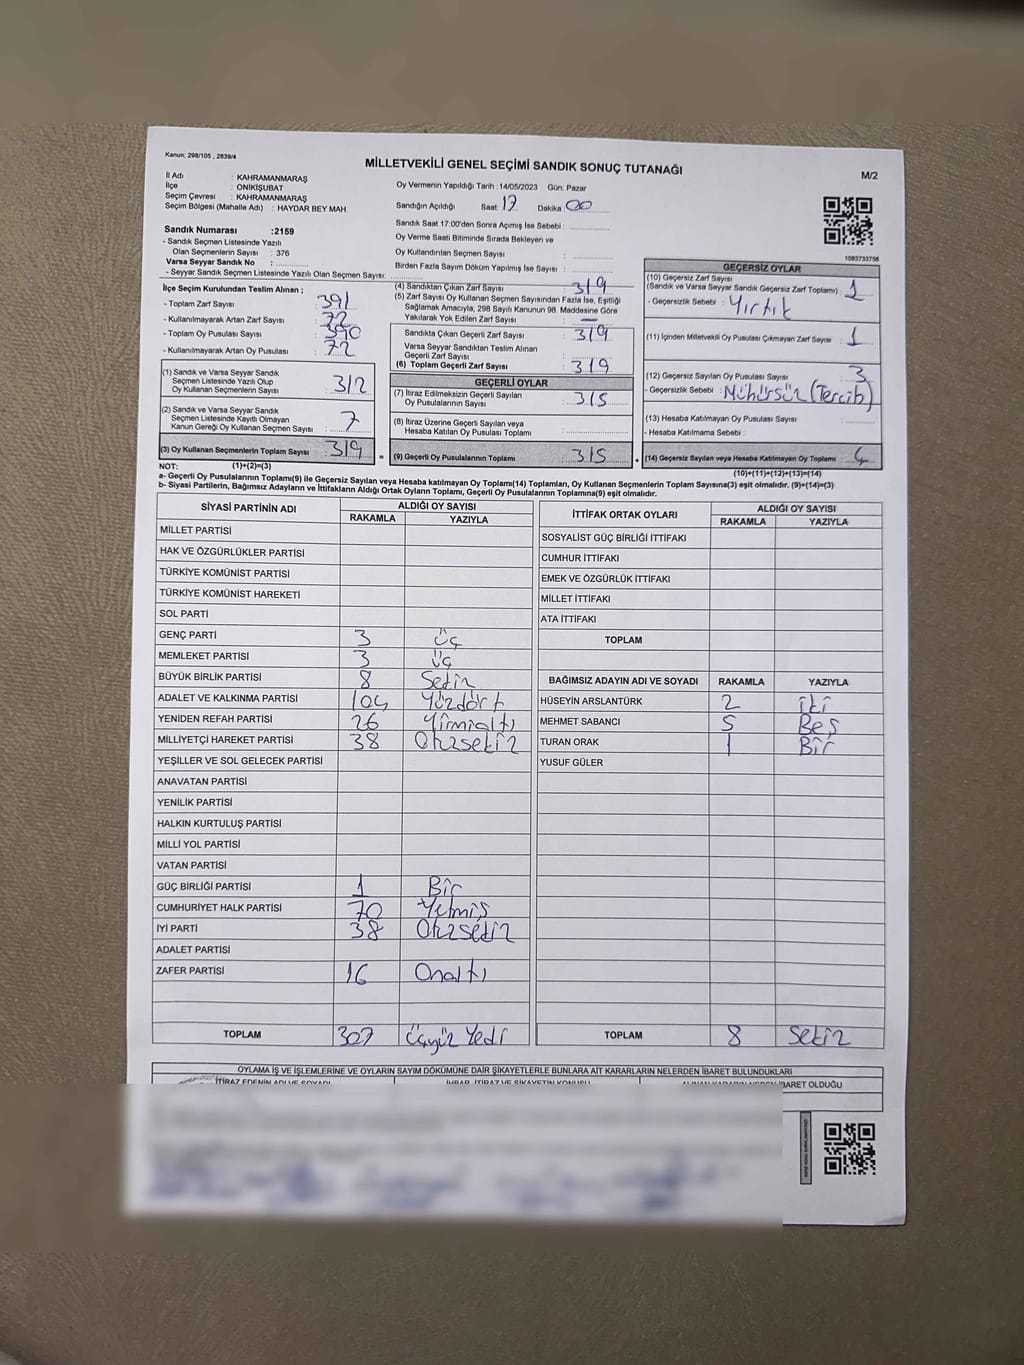 Kanun; 298/105 , 2839/4
MİLLETVEKİLİ GENEL SEÇİMİ SANDIK SONUÇ TUTANAĞI
M/2
İl Adı : KAHRAMANMARAŞ
İlçe : ONİKİŞUBAT
Seçim Çevresi : KAHRAMANMARAŞ
Seçim Bölgesi (Mahalle Adı) : HAYDAR BEY MAH.
Sandık Numarası :2159
- Sandık Seçmen Listesinde Yazılı
Olan Seçmenlerin Sayısı : 376
Varsa Seyyar Sandık No :
- Seyyar Sandık Seçmen Listesinde Yazılı Olan Seçmen Sayısı:
Oy Vermenin Yapıldığı Tarih : 14/05/2023 Gün: Pazar
Sandığın Açıldığı Saat: 17 Dakika 00
Sandık Saat 17:00'den Sonra Açımış İse Sebebi :
Oy Verme Saati Bitiminde Sırada Bekleyen ve
Oy Kullandırılan Seçmen Sayısı :
Birden Fazla Sayım Döküm Yapılmış İse Sayısı :
1083733756
İlçe Seçim Kurulundan Teslim Alınan ;
- Toplam Zarf Sayısı : 391
- Kullanılmayarak Artan Zarf Sayısı : 72
- Toplam Oy Pusulası Sayısı : 390
- Kullanılmayarak Artan Oy Pusulası : 72
(1) Sandık ve Varsa Seyyar Sandık
Seçmen Listesinde Yazılı Olup
Oy Kullanan Seçmenlerin Sayısı : 312
(2) Sandık ve Varsa Seyyar Sandık
Seçmen Listesinde Kayıtlı Olmayan
Kanun Gereği Oy Kullanan Seçmen Sayısı : 7
(3) Oy Kullanan Seçmenlerin Toplam Sayısı : 319
(4) Sandıktan Çıkan Zarf Sayısı : 319
(5) Zarf Sayısı Oy Kullanan Seçmen Sayısından Fazla İse, Eşitliği
Sağlamak Amacıyla, 298 Sayılı Kanunun 98. Maddesine Göre
Yakılarak Yok Edilen Zarf Sayısı : —
Sandıkta Çıkan Geçerli Zarf Sayısı : 319
Varsa Seyyar Sandıktan Teslim Alınan
Geçerli Zarf Sayısı :
(6) Toplam Geçerli Zarf Sayısı : 319
GEÇERLİ OYLAR
(7) İtiraz Edilmeksizin Geçerli Sayılan
Oy Pusulalarının Sayısı : 315
(8) İtiraz Üzerine Geçerli Sayılan veya
Hesaba Katılan Oy Pusulası Toplamı :
= (9) Geçerli Oy Pusulalarının Toplamı : 315
GEÇERSİZ OYLAR
(10) Geçersiz Zarf Sayısı
(Sandık ve Varsa Seyyar Sandık Geçersiz Zarf Toplamı) : 1
- Geçersizlik Sebebi : Yırtık
(11) İçinden Milletvekili Oy Pusulası Çıkmayan Zarf Sayısı : 1
(12) Geçersiz Sayılan Oy Pusulası Sayısı : 3
- Geçersizlik Sebebi : Mühürsüz (Tercih)
(13) Hesaba Katılmayan Oy Pusulası Sayısı :
- Hesaba Katılmama Sebebi :
(14) Geçersiz Sayılan veya Hesaba Katılmayan Oy Toplamı : 4
NOT: (1)+(2)=(3)
(10)+(11)+(12)+(13)=(14)
a- Geçerli Oy Pusulaları Toplamı(9) ile Geçersiz Sayılan veya Hesaba katılmayan Oy Toplamı(14) Toplamları, Oy Kullanan Seçmenlerin Toplam Sayısına(3) eşit olmalıdır. (9)+(14)=(3)
b- Siyasi Partilerin, Bağımsız Adayların ve İttifakların Aldığı Ortak Oyların Toplamı, Geçerli Oy Pusulalarının Toplamına(9) eşit olmalıdır.
SİYASİ PARTİNİN ADI ALDIĞI OY SAYISI
RAKAMLA YAZIYLA
MİLLET PARTİSİ
HAK VE ÖZGÜRLÜKLER PARTİSİ
TÜRKİYE KOMÜNİST PARTİSİ
TÜRKİYE KOMÜNİST HAREKETİ
SOL PARTİ
GENÇ PARTİ 3 Üç
MEMLEKET PARTİSİ 3 Üç
BÜYÜK BİRLİK PARTİSİ 8 Sekiz
ADALET VE KALKINMA PARTİSİ 104 Yüzdört
YENİDEN REFAH PARTİSİ 26 Yirmialtı
MİLLİYETÇİ HAREKET PARTİSİ 38 Otuzsekiz
YEŞİLLER VE SOL GELECEK PARTİSİ
ANAVATAN PARTİSİ
YENİLİK PARTİSİ
HALKIN KURTULUŞ PARTİSİ
MİLLİ YOL PARTİSİ
VATAN PARTİSİ
GÜÇ BİRLİĞİ PARTİSİ 1 Bir
CUMHURİYET HALK PARTİSİ 70 Yetmiş
İYİ PARTİ 38 Otuzsekiz
ADALET PARTİSİ
ZAFER PARTİSİ 16 Onaltı
TOPLAM 307 Üçyüz Yedi
İTTİFAK ORTAK OYLARI ALDIĞI OY SAYISI
RAKAMLA YAZIYLA
SOSYALİST GÜÇ BİRLİĞİ İTTİFAKI
CUMHUR İTTİFAKI
EMEK VE ÖZGÜRLÜK İTTİFAKI
MİLLET İTTİFAKI
ATA İTTİFAKI
TOPLAM
BAĞIMSIZ ADAYIN ADI VE SOYADI RAKAMLA YAZIYLA
HÜSEYİN ARSLANTÜRK 2 İki
MEHMET SABANCI 5 Beş
TURAN ORAK 1 Bir
YUSUF GÜLER
TOPLAM 8 Sekiz
OYLAMA İŞ VE İŞLEMLERİNE VE OYLARIN SAYIM DÖKÜMÜNE DAİR ŞİKAYETLERLE BUNLARA AİT KARARLARIN NELERDEN İBARET BULUNDUKLARI
İTİRAZ EDENİN ADI VE SOYADI İHBAR, İTİRAZ VE ŞİKAYETİN KONUSU İBARET OLDUĞU